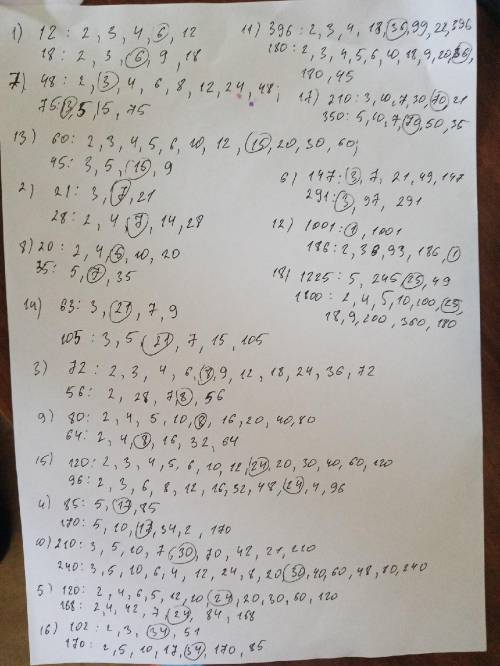 1) 12: 2, 3, 4, 6, 12
18: 2, 3, 6, 9, 18
7) 48: 2, 3, 4, 6, 8, 12, 24, 48;
75: 3, 5, 15, 75
13) 60: 2, 3, 4, 5, 6, 10, 12, 15, 20, 30, 60;
45: 3, 5, 15, 9
2) 21: 3, 7, 21
28: 2, 4, 7, 14, 28
8) 20: 2, 4, 5, 10, 20
35: 5, 7, 35
14) 63: 3, 21, 7, 9
105: 3, 5, 21, 7, 15, 105
3) 72: 2, 3, 4, 6, 8, 9, 12, 18, 24, 36, 72
56: 2, 28, 7, 8, 56
9) 80: 2, 4, 5, 10, 8, 16, 20, 40, 80
64: 2, 4, 8, 16, 32, 64
15) 120: 2, 3, 4, 5, 6, 10, 12, 24, 20, 30, 40, 60, 120
96: 2, 3, 6, 8, 12, 16, 32, 48, 24, 4, 96
4) 85: 5, 17, 85
170: 5, 10, 17, 34, 2, 170
10) 210: 3, 5, 10, 7, 30, 70, 42, 21, 210
240: 3, 5, 10, 6, 4, 12, 24, 8, 20, 30, 40, 60, 48, 80, 240
5) 120: 2, 4, 6, 5, 12, 10, 24, 20, 30, 60, 120
168: 2, 4, 42, 7, 24, 84, 168
16) 102: 2, 3, 34, 51
170: 2, 5, 10, 17, 34, 170, 85
11) 396: 2, 3, 4, 18, 36, 99, 22, 396
180: 2, 3, 4, 5, 6, 10, 18, 9, 20, 36,
180, 45
17) 210: 3, 10, 7, 30, 70, 21
350: 5, 10, 7, 70, 50, 35
6) 147: 3, 7, 21, 49, 147
291: 3, 97, 291
12) 1001: 1, 1001
186: 2, 93, 186, 1
18) 1225: 5, 245, 25, 49
1800: 2, 4, 5, 10, 100, 25,
18, 9, 200, 360, 180